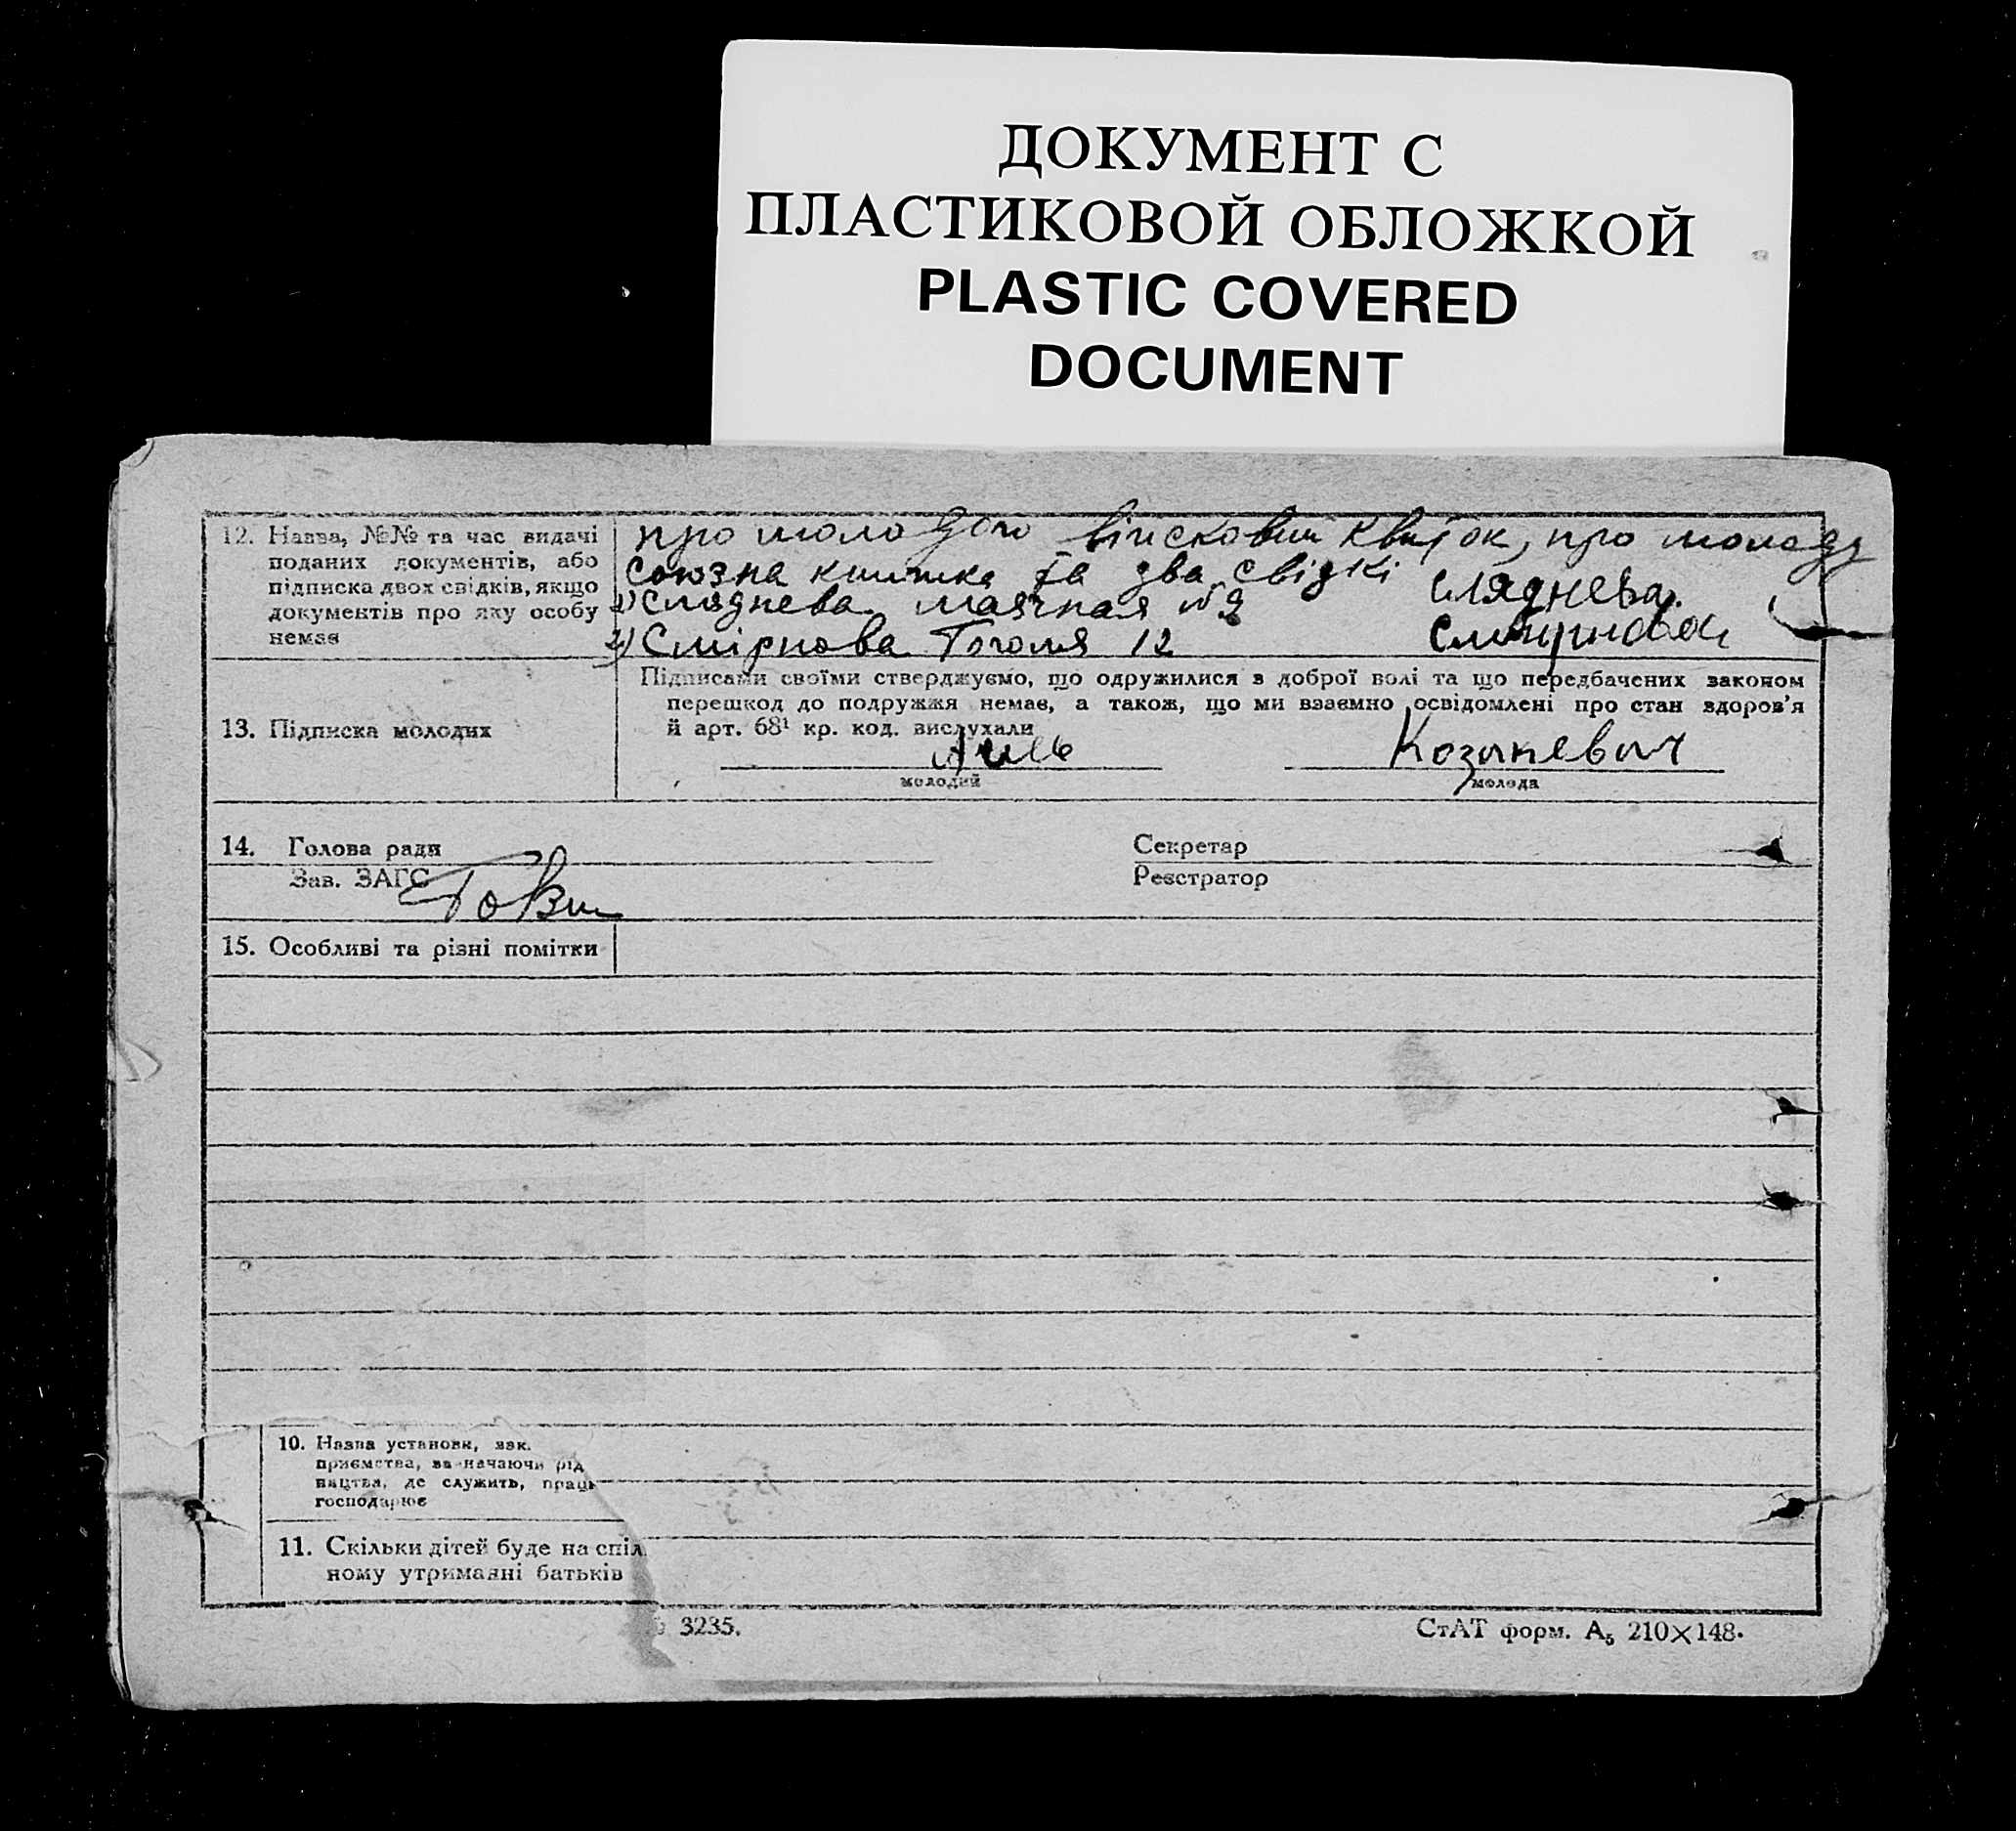 ДОКУМЕНТ С
ПЛАСТИКОВОЙ ОБЛОЖКОЙ
PLASTIC COVERED
DOCUMENT
12. Назва, №№ та час видачі
поданих документів, або
підписка двох свідків, якщо
документів про яку особу
немає
про молодого війсковий квиток, про молоду
союзна книжка та два свідкі
1) Сляднева Маячная № Сляднева
2) Смірнова Гоголя 12 Смирнова
13. Підписка молодих
Підписами своїми стверджуємо, що одружилися в доброї волі та що передбачених законом
перешкод до подружжя немає, а також, що ми взаємно освідомлені про стан здоров'я
й арт. 68¹ кр. код. вислухали
Козинкевич
молодий молода
14. Голова ради Секретар
Зав. ЗАГС Реєстратор
15. Особливі та різні помітки
10. Назва установи,
приємства,
вицтва, де служить,
господарює
11. Скільки дітей буде на
ному утриманні батьків
3235. СтАТ форм. А₅ 210×148.